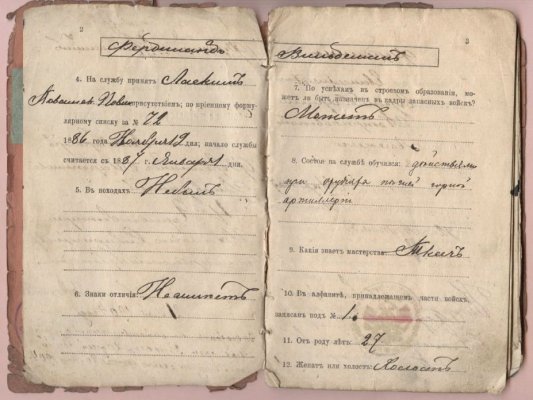 2
Фердинандъ
4. На службу принятъ Ласкимъ
Повѣтов. присутствіемъ; по пріемному форму-
лярному списку за № 72
1886 года Ноября 9 дня; начало службы
считается съ 1887 г. Января 1 дня.
5. Въ походахъ Небылъ
6. Знаки отличія: Неимѣетъ
3
7. По успѣхамъ въ строевомъ образованіи, мо-
жетъ ли быть назначенъ въ кадры запасныхъ войскъ?
Можетъ
8. Состоя на службѣ обучался: дѣйствіямъ
при орудіяхъ горной
артиллеріи
9. Какія знаетъ мастерства: Ткачъ
10. Въ алфавитѣ, принадлежащемъ части войскъ,
записанъ подъ № 1.
11. Отъ роду лѣтъ: 27
12. Женатъ или холостъ: Холостъ